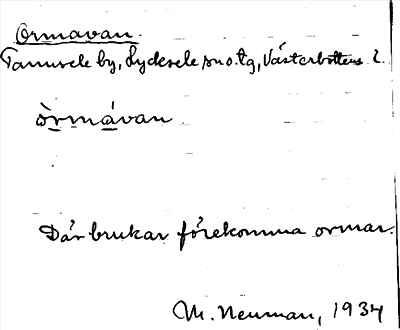 Ormavan.
Tannsele by, Lycksele sn o. tg, Västerbottens l.
òrmávan
Där brukar förekomma ormar.
M. Neuman, 1934